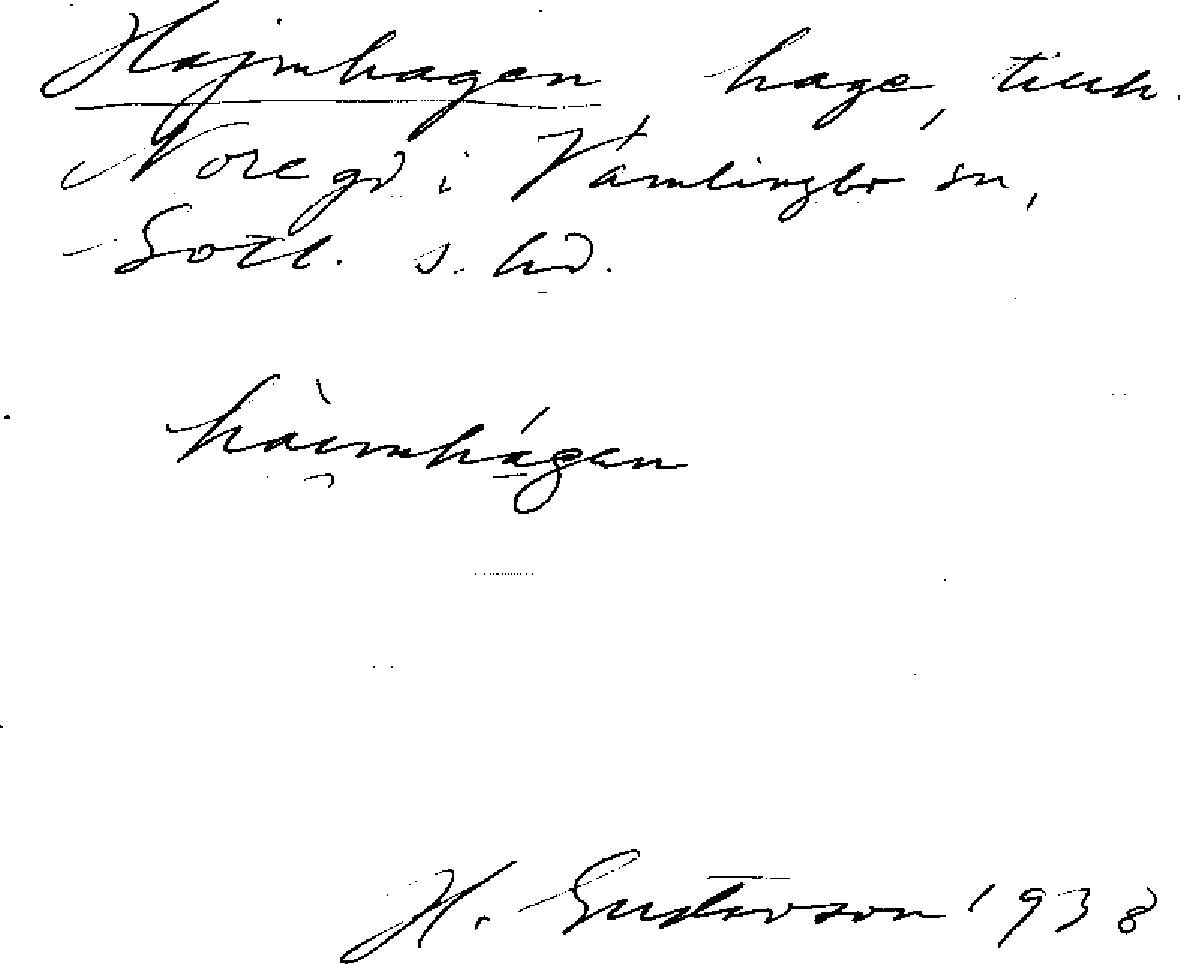 Hajmhagen hage, tillh.
Nore gd i Vamlingbo sn,
Gotl. s. hd.
hàimhágen
H. Gustavson 1938